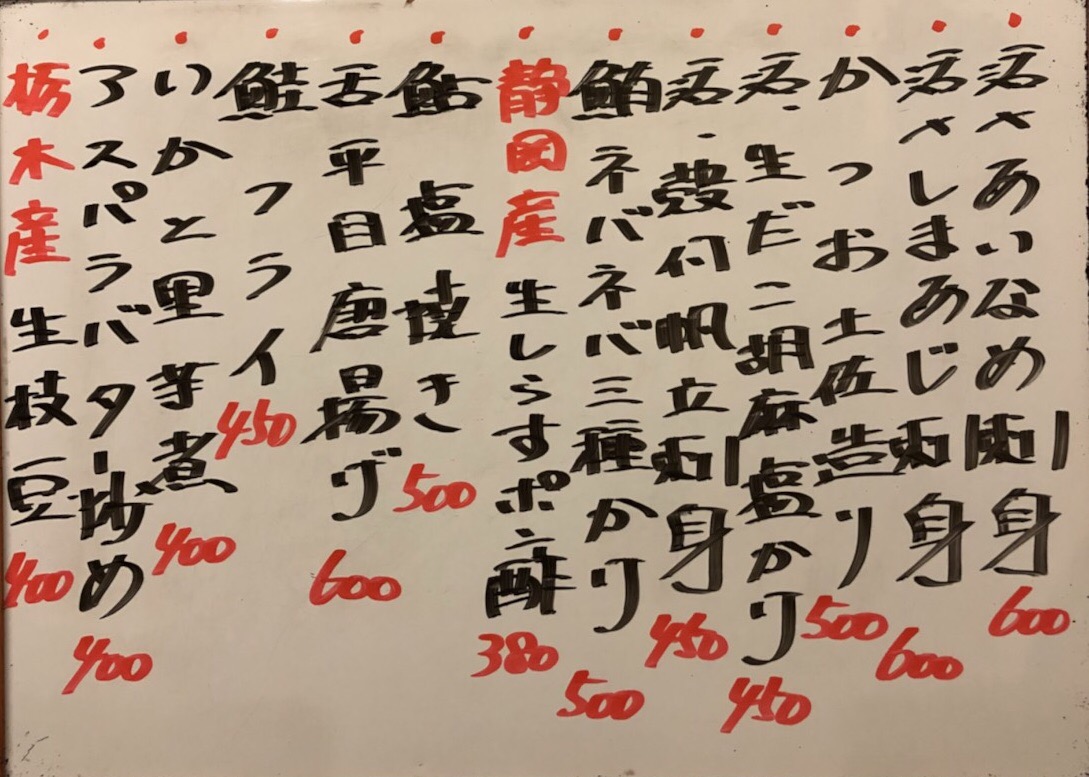 活〆あいなめ刺身 600
活〆しまあじ刺身 600
かつお土佐造り 500
活・生だこ胡麻塩かり 450
活・殻付帆立刺身 450
鮪ネバネバ三種かり 500
静岡産生しらすポン酢 380
鮎塩焼き 500
舌平目唐揚げ 600
鮭フライ 450
いかと里芋煮 400
アスパラバター炒め 400
栃木産生枝豆 400